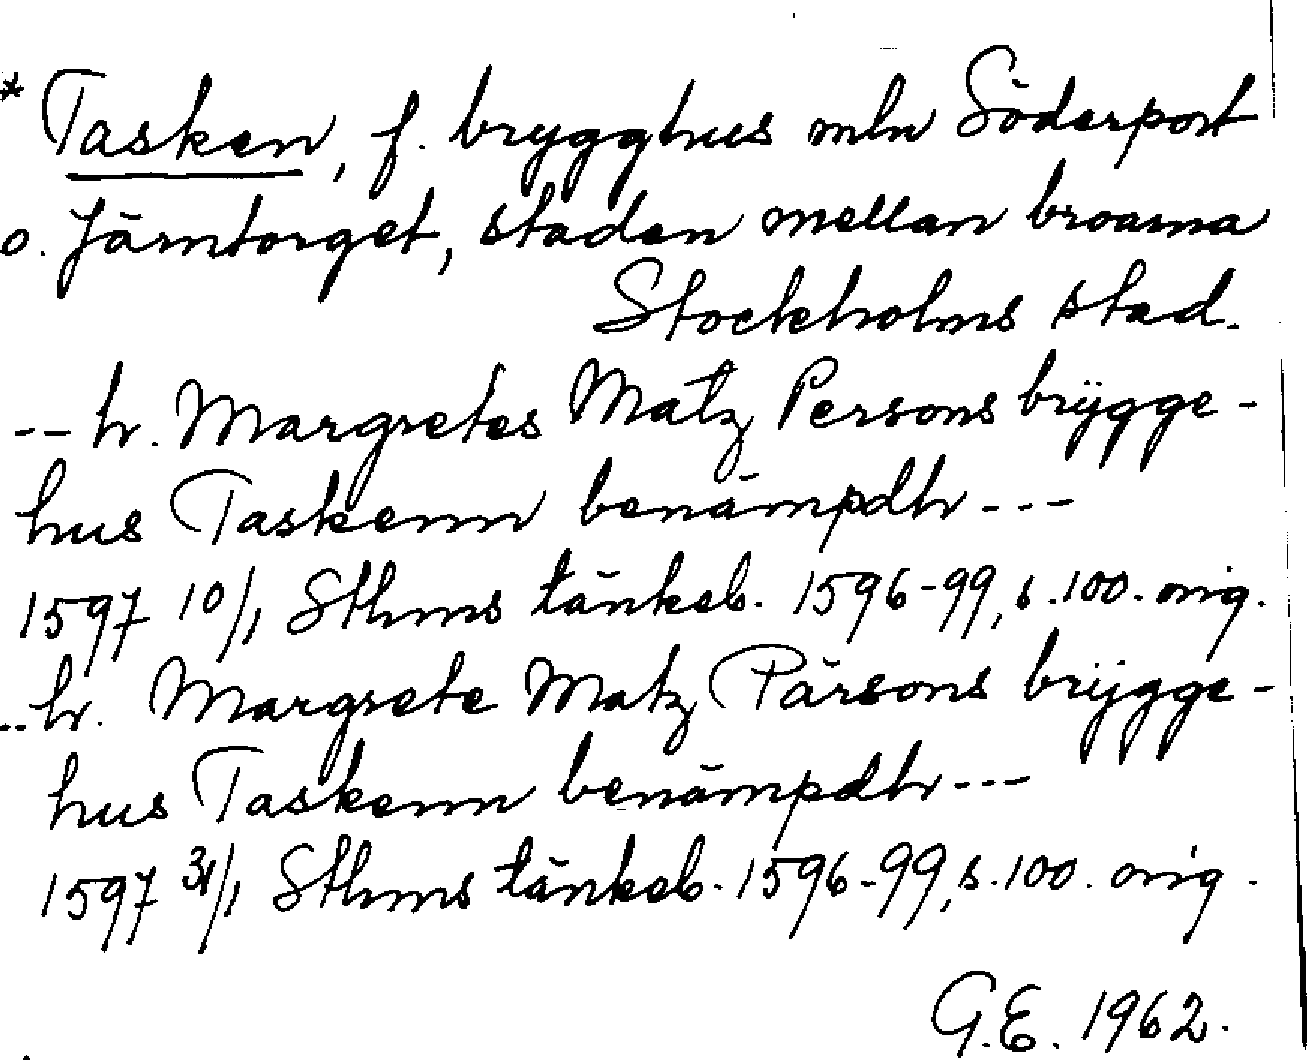 * Tasken, f. brygghus mln Söderport
o. Järntorget, staden mellan broarna
Stockholms stad.
-- hr. Margretes Matz Persons brÿgge-
hus Taskenn benämpdh ---
1597 10/1 Sthms tänkeb. 1596-99, s. 100. orig.
-- hr. Margrete Matz Pärsons brÿgge-
hus Taskenn benämpdh ---
1597 31/1 Sthms tänkeb. 1596-99, s. 100. orig.
G.E. 1962.